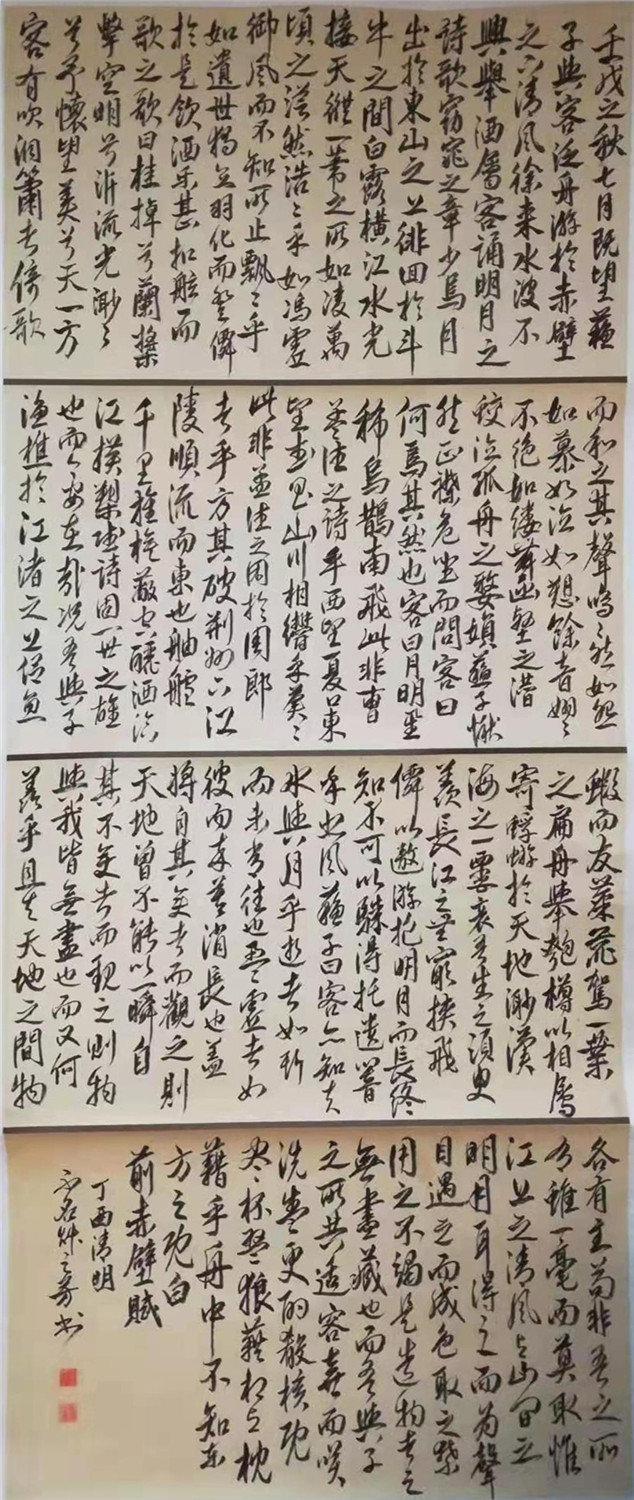 壬戌之秋七月既望蘇
子與客泛舟游於赤壁
之下清風徐来水波不
興舉酒屬客誦明月之
詩歌窈窕之章少焉月
出於東山之上徘徊於斗
牛之間白露横江水光
接天縱一葦之所如凌萬
頃之茫然浩〻乎如馮虚
御風而不知所止飄〻乎
如遺世獨立羽化而登僊
於是飲酒樂甚扣舷而
歌之歌曰桂棹兮蘭槳
擊空明兮泝流光渺〻
兮予懷望美兮天一方
客有吹洞簫者倚歌
而和之其聲嗚〻然如怨
如慕如泣如愬餘音嫋〻
不絶如縷舞幽壑之潜
蛟泣孤舟之嫠婦蘇子愀
然正襟危坐而問客曰
何為其然也客曰月明星
稀烏鵲南飛此非曹
孟德之詩乎西望夏東
望武昌山川相繆乎蒼〻
此非孟德之困於周郎
者乎方其破荆州下江
陵順流而東也舳艫
千里旌旗蔽空釃酒臨
江横槊賦詩固一世之雄
也而今安在哉況吾與子
漁樵於江渚之上侣魚
蝦而友麋鹿駕一葉
之扁舟舉匏樽以相屬
寄蜉蝣於天地渺滄
海之一粟哀吾生之須臾
羨長江之無窮挾飛
僊以遨游抱明月而長終
知不可以驟得托遺響
於悲風蘇子曰客亦知夫
水與月乎逝者如斯
而未嘗往也盈虚者如
彼而卒莫消長也蓋
將自其變者而觀之則
天地曾不能以一瞬自
其不變者而觀之則物
與我皆無盡也而又何
羨乎且夫天地之間物
各有主苟非吾之所
有雖一毫而莫取惟
江上之清風與山間之
明月耳得之而為聲
目遇之而成色取之禁
用之不竭是造物者之
無盡藏也而吾與子
之所共適客喜而笑
洗盞更酌殽核既
盡杯盤狼藉相與枕
藉乎舟中不知东
方之既白
前赤壁賦
丁酉清明